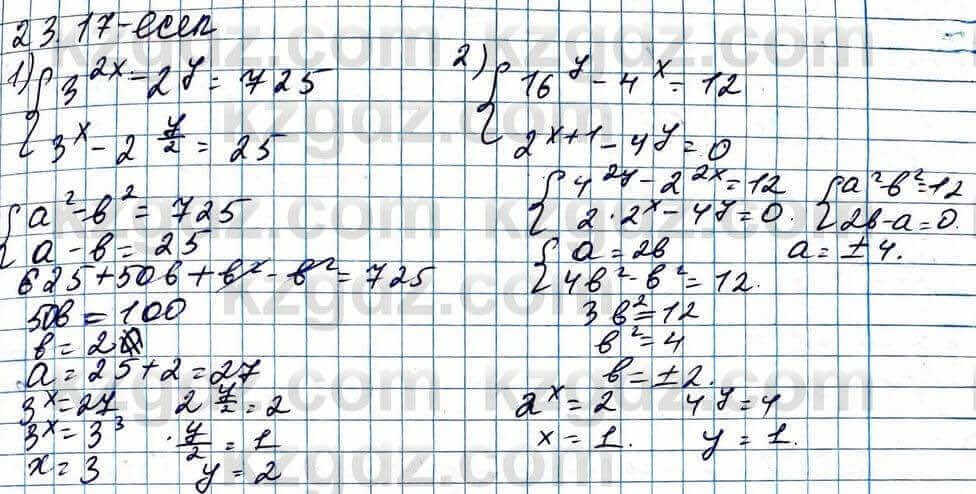 23.17-есеп
1) { 3^{2x} - 2^y = 725
3^x - 2^{y/2} = 25
{ a² - b² = 725
a - b = 25
625 + 50b + b² - b² = 725
50b = 100
b = 2
a = 25 + 2 = 27
3^x = 27   2^{y/2} = 2
3^x = 3^3   y/2 = 1
x = 3   y = 2
2) { 16^y - 4^x = 12
2^{x+1} - 4^y = 0
{ 4^{2y} - 2^{2x} = 12   { a² - b² = 12
2·2^x - 4^y = 0.   2b - a = 0.
{ a = 2b   a = ±4.
4b² - b² = 12.
3b² = 12
b² = 4
b = ±2.
2^x = 2   4^y = 4
x = 1.   y = 1.
kzgdz.com